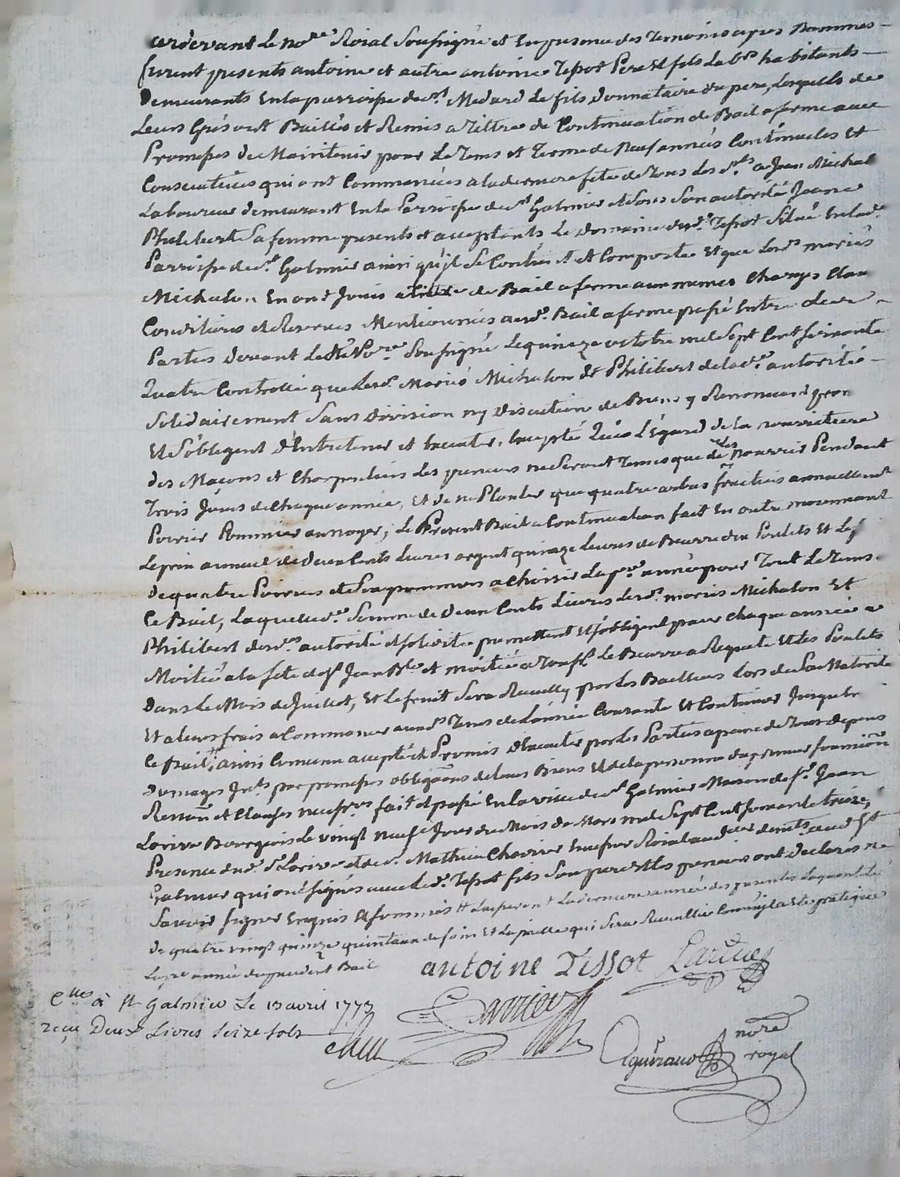 pardevant le no.re Roial soussigné et en presence des temoins apres nommes
furent presents antoine et autre antoine Tissot Pere et fils lab.rs habitants
demeurants en la parroisse de s.t Medard le fils donnataire du pere, lesquels de
leurs grés ont Baillés et Remis a tittre de Continuation de Bail a ferme avec
Promesses de Maintenir pour le tems et terme de neuf années Continuelles et
Consecutives qui ont Commencées a la derniere fete de tous les s.ts a Jean Michalon
laboureur demeurant en la Parroisse de s.t Galmier et sous son autorité Jeanne
Philibert sa femme presents et acceptants le domaine dud. Tissot situé en lad.
Parroisse de s.t Galmier ainsi qu'il se Contient et Comporte et que les d. mariés
Michalon en ont Joui a titre de Bail a ferme aux memes Charges Clauses
Conditions et Reserves Mentionnées aud. Bail a ferme passé entre les
Parties devant le no.re soussigné le quinze octobre mil sept Cent soixante
quatre Controllé que les d. Mariés Michalon et Philibert de lad. autorité
solidairement sans division ny discution de Biens y Renonceant
et s'obligent d'entretenir et executer, excepté qu'a l'égard de la nourriture
des Maçons et Charpentiers les preneurs ne seront tenus que de les nourrir Pendant
trois Jours de Chaque année, et de ne Planter que quatre arbres fruitiers annuellement
Poirier Pommier ou noyer; le Present Bail a Continuation fait en outre moyennant
le prix annuel de deux Cents livres argent quinze livres de Beurre six Poulets et le fruit
de quatre Poiriers et six pommiers a choisir la p.re année pour tout le tems
Ce Bail, laquelle d. somme de deux Cents livres les d. mariés Michalon et
Philibert de lad. autorité et solidité promettent et s'obligent payer chaque année
Moitié a la fete de s.t Jean B.te et moitié a Touss.t le Beurre a Requete et les Poulets
dans le Mois de Juillet, et le fruit sera Recueilly par les Bailleurs lors de sa Maturité
et a leurs frais a Commencer aud. tems de l'année Courante et Continuer Jusqu'a
ce fruit, ainsi Convenu accepté et Promis d'executer par les Parties a peine de tous depens
dommages Int.ts par promesses obligations de leurs Biens et de la personne du preneur soumissions
Renon.ons et Clauses necess.res fait et passé en la ville de s.t Galmier Maison de s.r Jean
Bourgeois le vingt neuf Jour du Mois de Mars mil sept Cent soixante treize,
Presence dud. s.r et de s.r Mathieu huissier Roial aud.
Galmier qui ont signés avec le d. Tissot fils son pere et les preneurs ont declarés ne
savoir signer enquis et sommés la derniere année des presentes la quantité
de quatre vingt quinze quintaux de foin et la paille qui sera Recueillie
la p.re année du present Bail
antoine Tissot
C.lle à St Galmier le 13 avril 1773
reçu Deux Livres seize sols
nore
royal